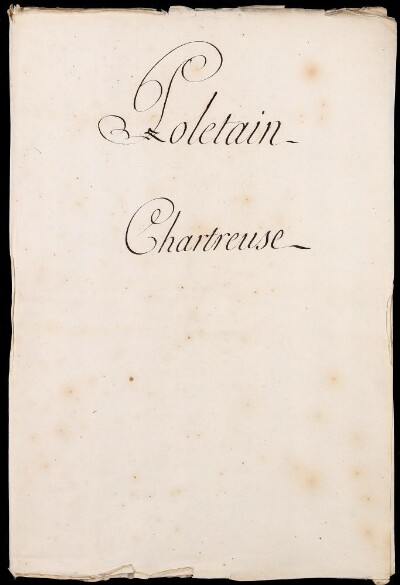 Poletain_
Chartreuse_